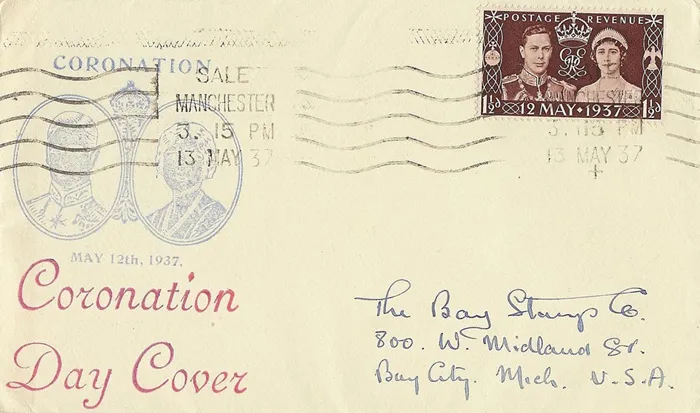 POSTAGE REVENUE
1½d 12 MAY · 1937 1½d
CORONATION
SALE
MANCHESTER
3. 15 PM
13 MAY 37
MANCHESTER
3. 15 PM
13 MAY 37
MAY 12th, 1937.
Coronation
Day Cover
The Bay Stamp Co.
800. W. Midland St.
Bay City. Mich. U.S.A.